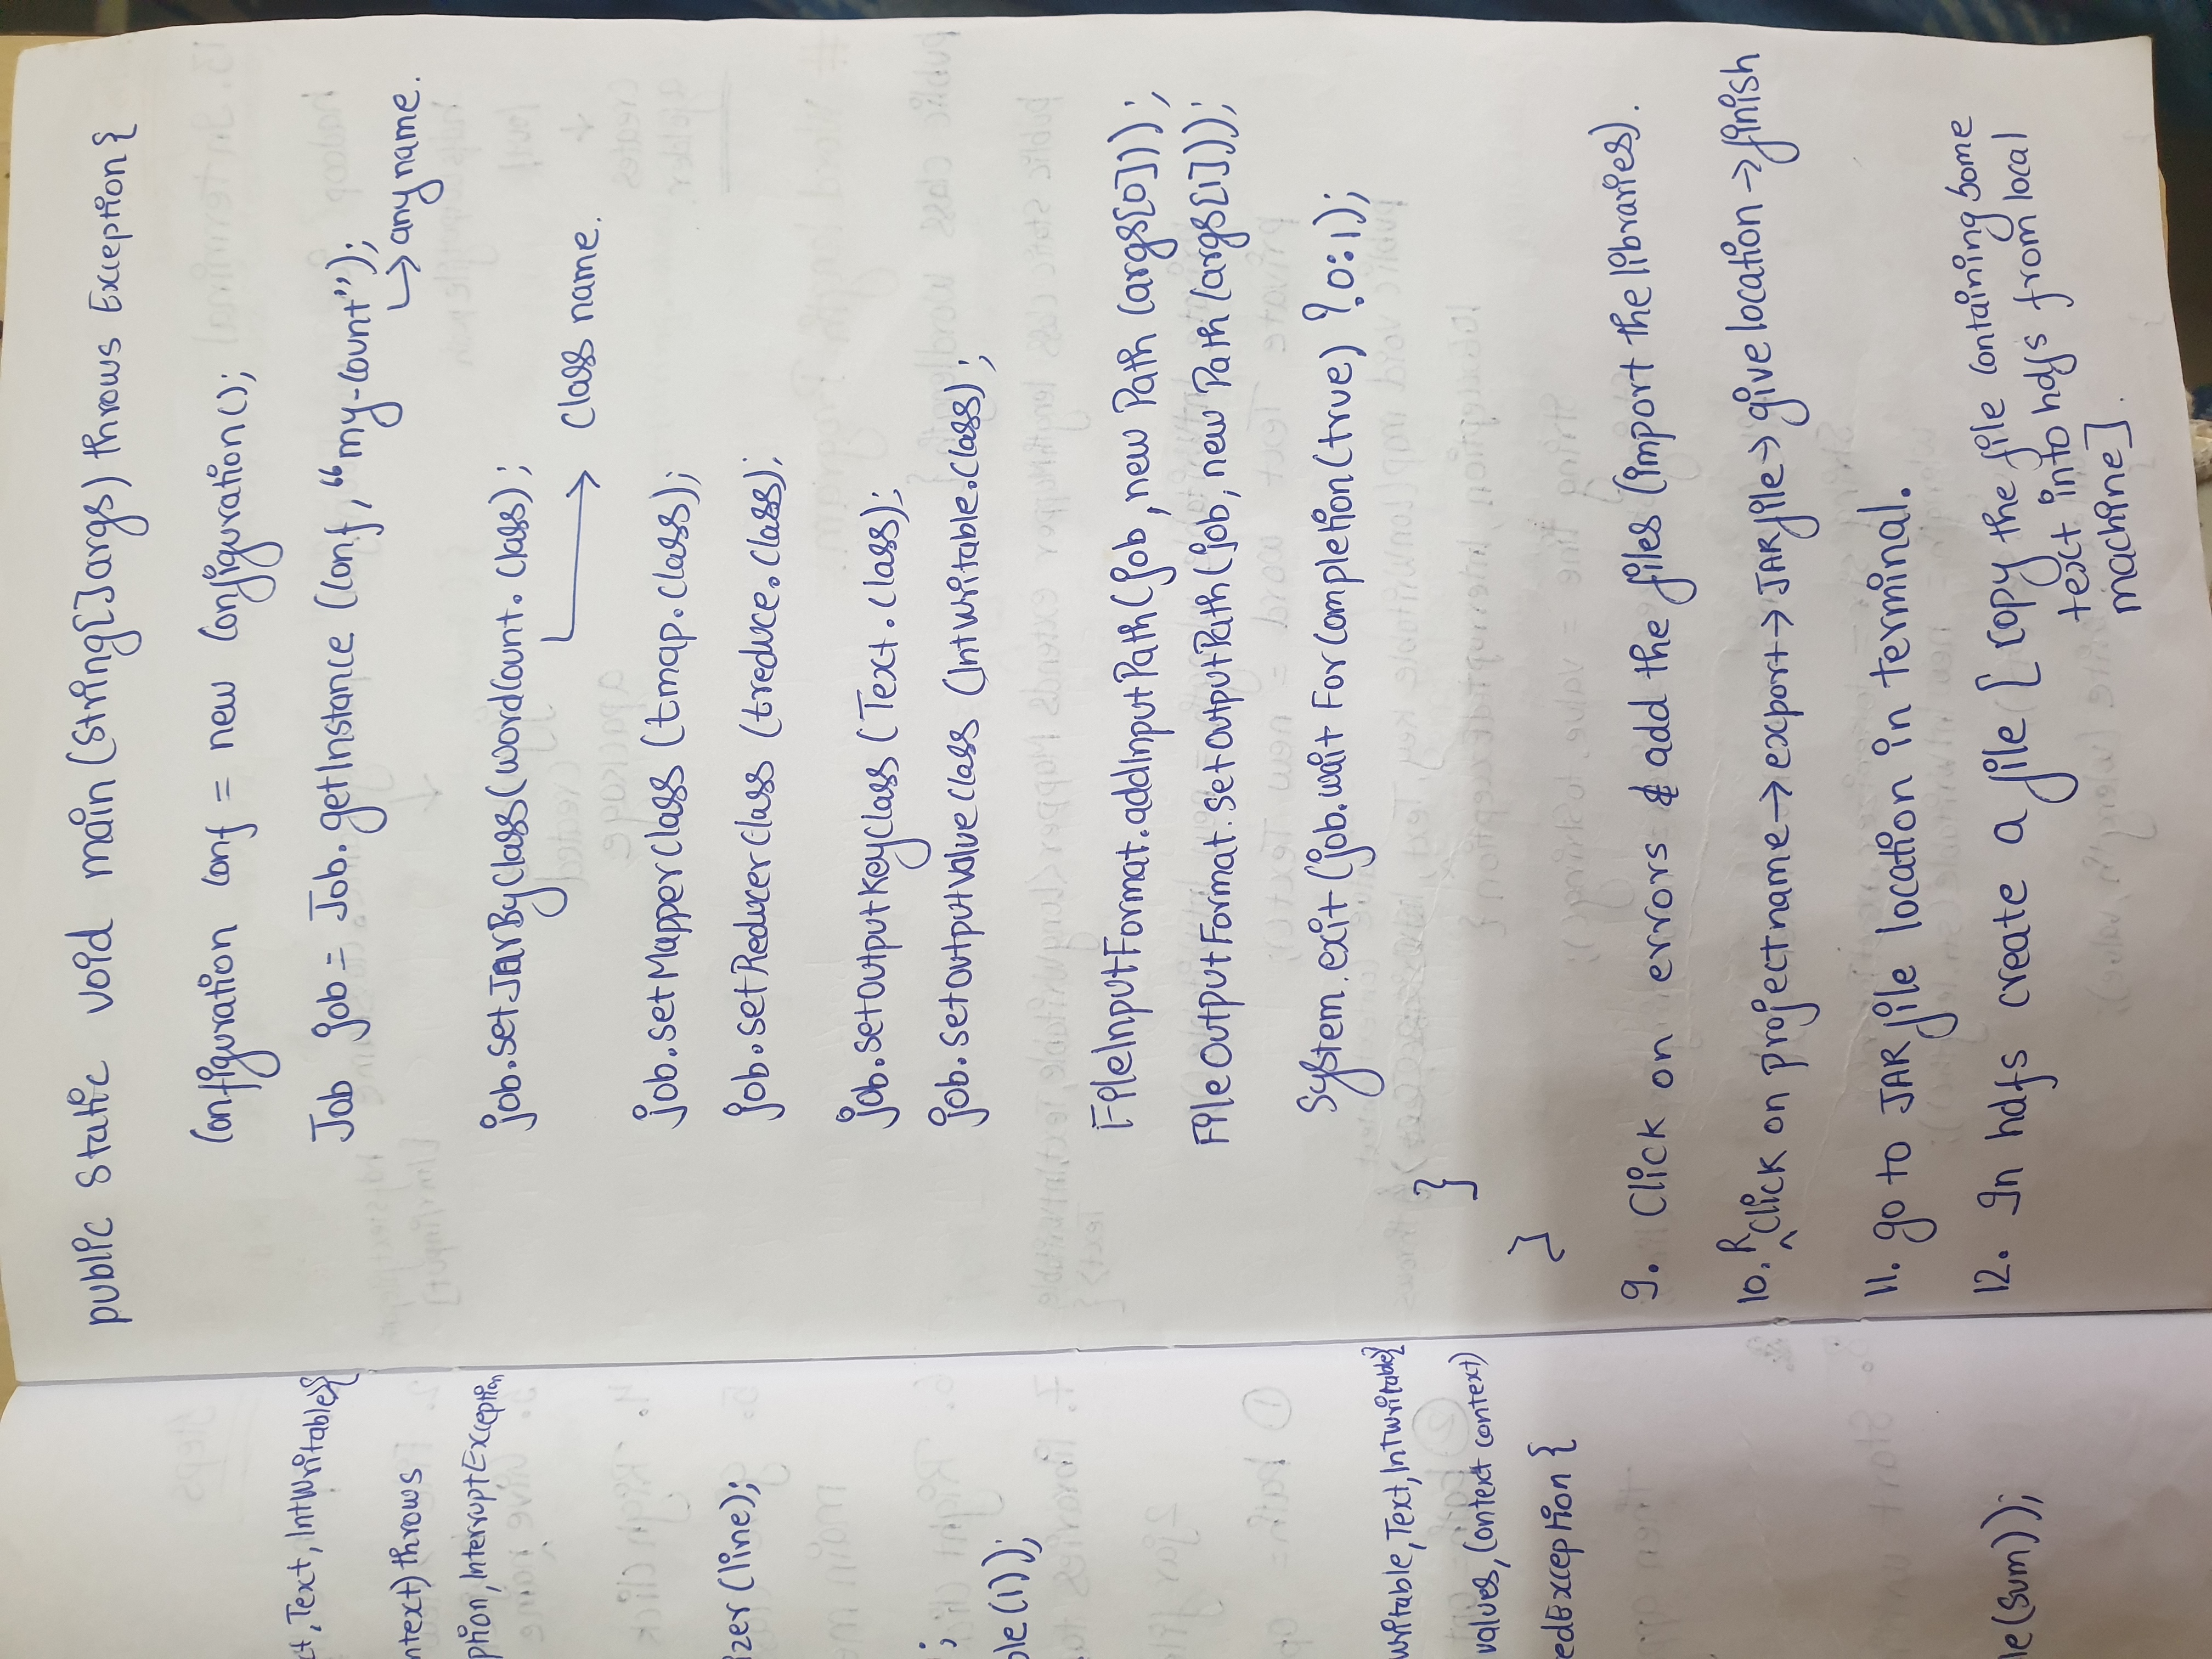 ct, Text, IntWritable>{
ntext) throws
ption, InterruptException
izer (line);
;
ble (1));
writable, Text, IntWritable>{
values, Context context)
edException {
le(sum));
public static void main (String[] args) throws Exception {
Configuration conf = new Configuration();
Job job = Job.getInstance (conf, “my-count”);
↳ any name.
job.setJarByClass (WordCount.class);
→ class name.
job.setMapperClass (tmap.class);
job.setReducerClass (treduce.class);
job.setOutputKeyClass (Text.class);
job.setOutputValueClass (IntWritable.class);
FileInputFormat.addInputPath (job, new Path (args[0]));
FileOutputFormat.setOutputPath (job, new Path (args[1]));
System.exit (job.waitForCompletion (true) ? 0:1);
}
}
9. Click on errors & add the files (import the libraries).
10. R Click on project name → export → JAR file → give location → finish
11. go to JAR file location in terminal.
12. In hdfs create a file [copy the file containing some
text into hdfs from local
machine].